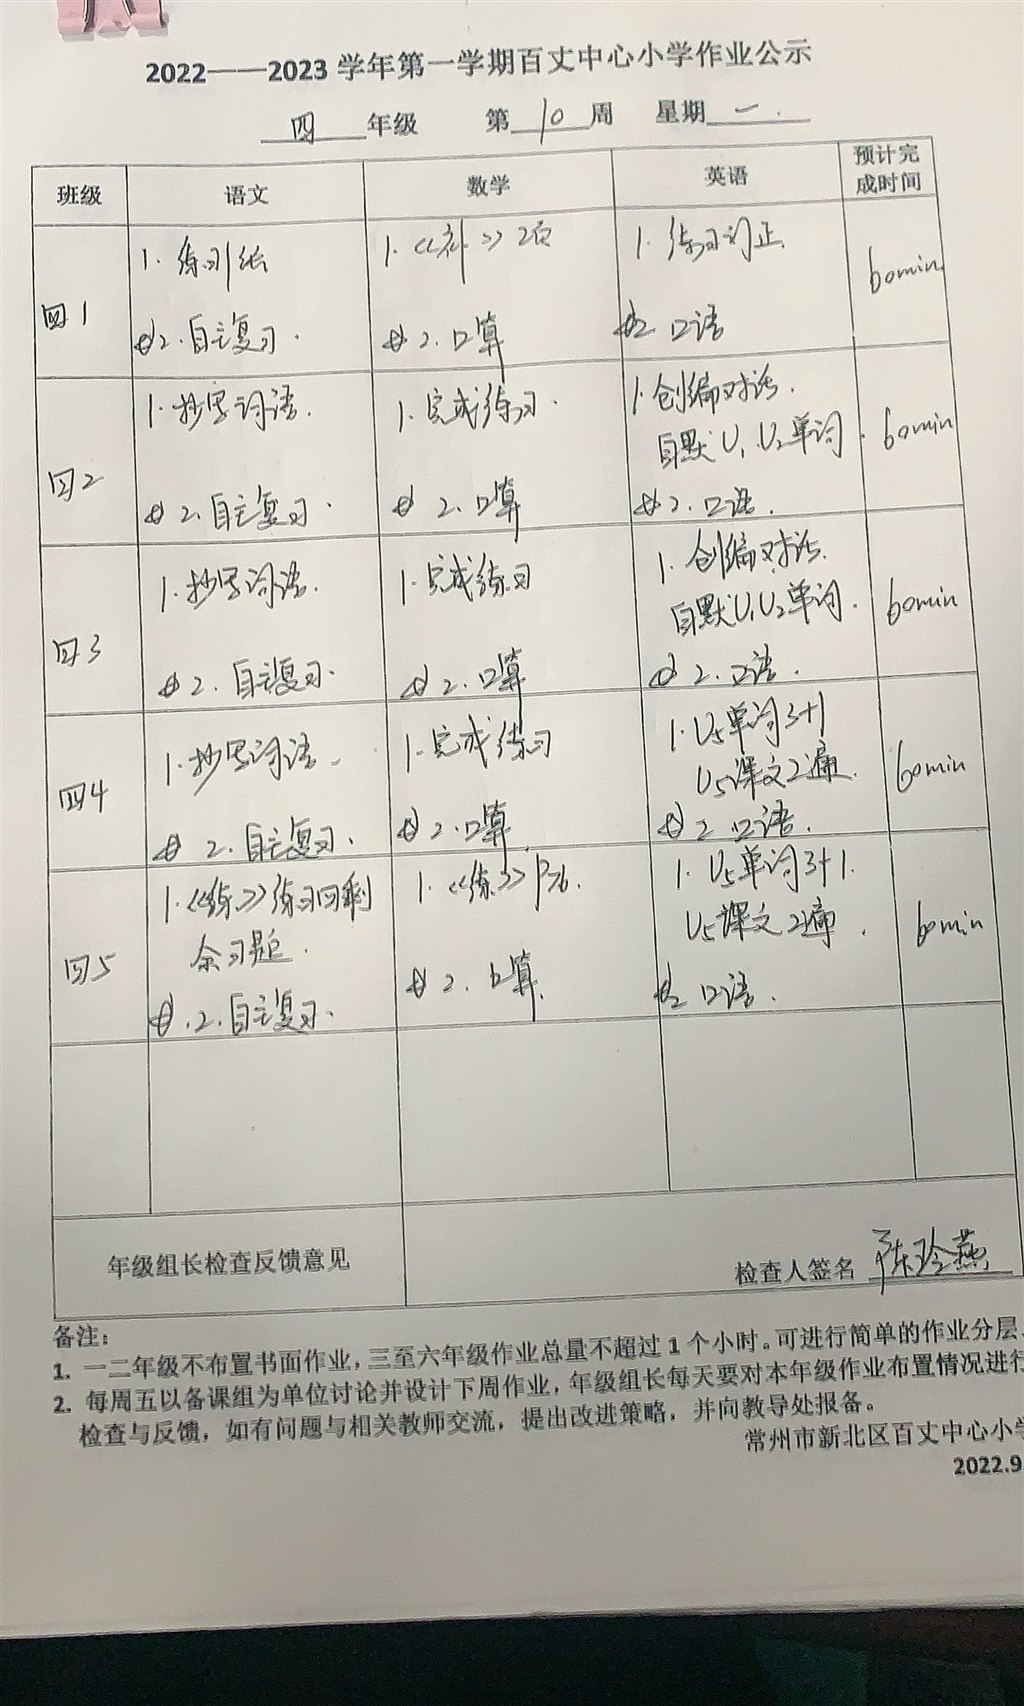 2022——2023 学年第一学期百丈中心小学作业公示
四 年级 第 10 周 星期 一
班级 语文 数学 英语 预计完成时间
四1
1. 练习纸
2. 自主复习.
1. 《补》2页
2. 口算
1. 练习订正.
2 口语
60min
四2
1. 抄写词语.
2. 自主复习.
1. 完成练习.
2. 口算
1. 创编对话.
自默U1、U2单词.
2. 口语.
60min
四3
1. 抄写词语.
2. 自主复习.
1. 完成练习
2. 口算
1. 创编对话.
自默U1U2单词.
2. 口语.
60min
四4
1. 抄写词语.
2. 自主复习.
1. 完成练习
2. 口算
1. U5单词3+1
U5课文2遍.
2 口语.
60min
四5
1. 《练》练习四剩
余习题.
2. 自主复习.
1. 《练》P76.
2. 口算.
1. U5单词3+1.
U5课文2遍.
2 口语.
60min
年级组长检查反馈意见
检查人签名 陈玲燕
备注:
1. 一二年级不布置书面作业,三至六年级作业总量不超过 1 个小时。可进行简单的作业分层、
2. 每周五以备课组为单位讨论并设计下周作业,年级组长每天要对本年级作业布置情况进行
检查与反馈,如有问题与相关教师交流,提出改进策略,并向教导处报备。
常州市新北区百丈中心小学
2022.9